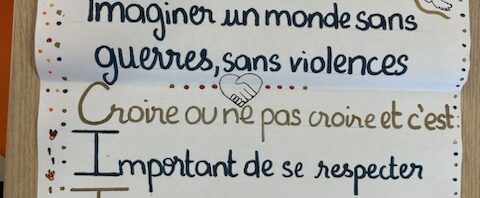 Imaginer un monde sans
guerres, sans violences
Croire ou ne pas croire et c'est:
Important de se respecter